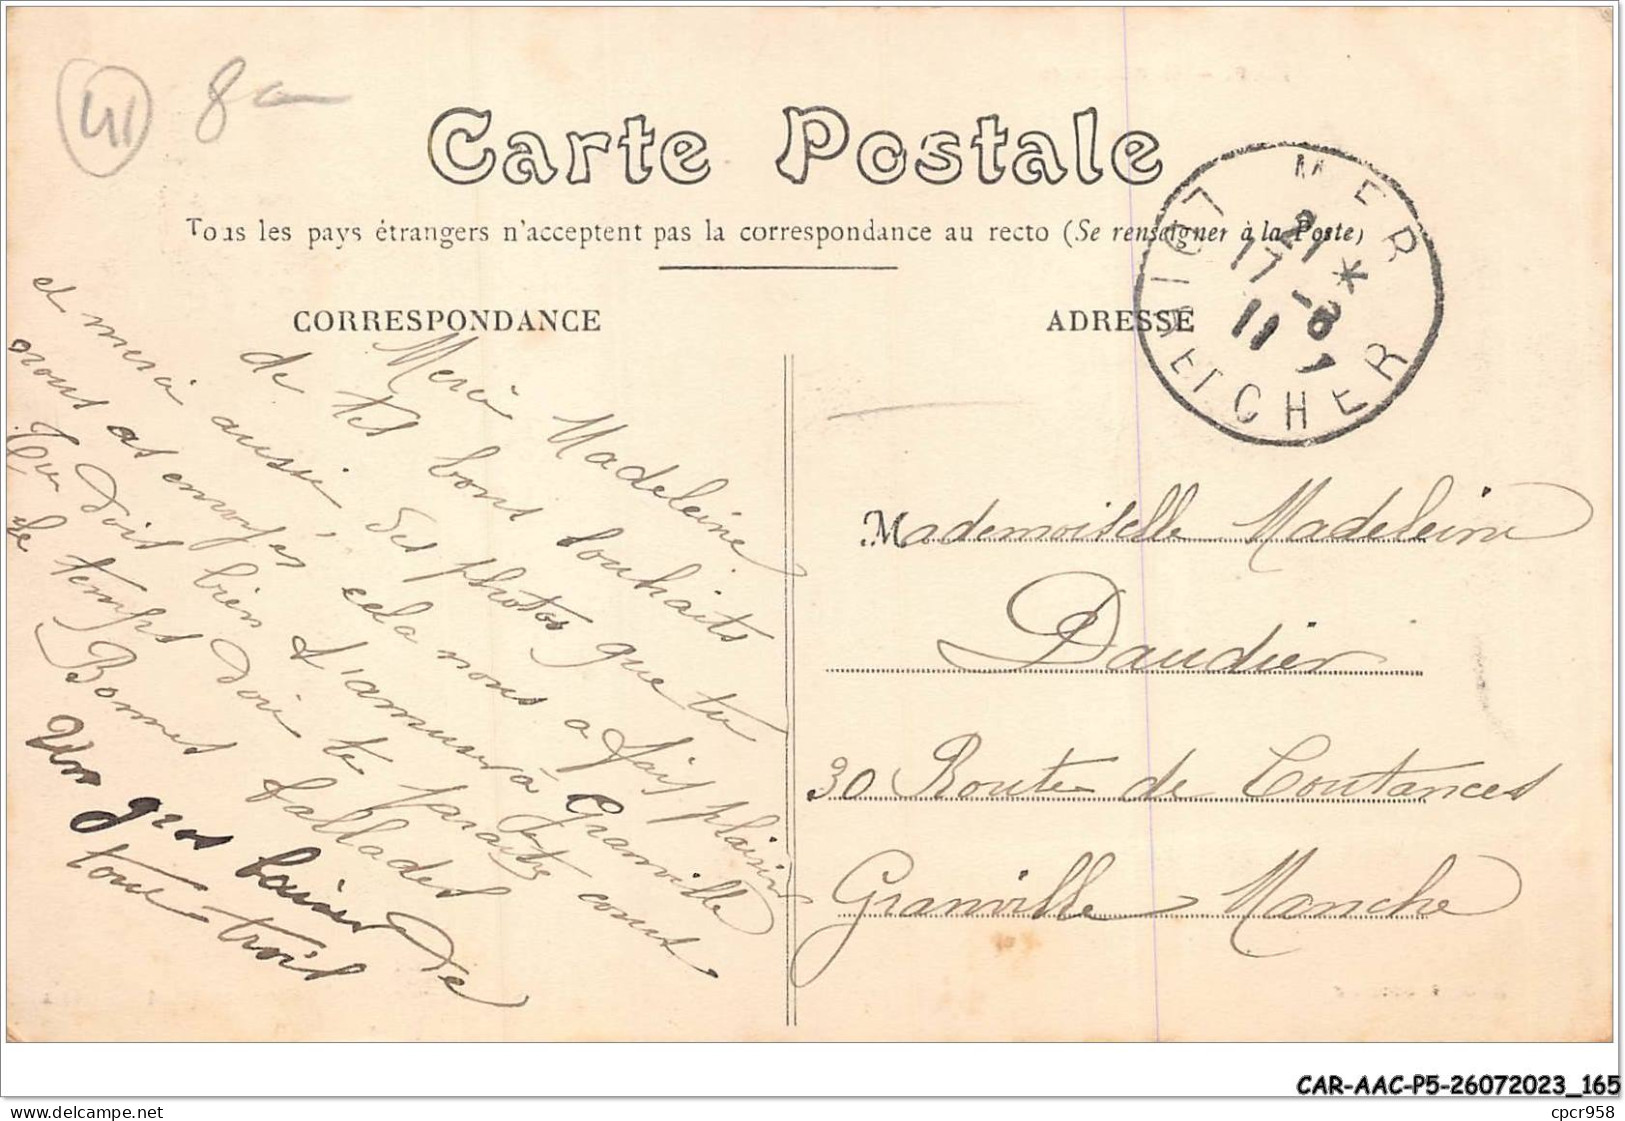 41 8
Carte Postale
Tous les pays étrangers n'acceptent pas la correspondance au recto (Se renseigner à la Poste)
CORRESPONDANCE
Merci Madeleine
de tes bons souhaits
et merci aussi des photos que tu
nous as envoyés, cela nous a fais plaisir
Tu dois bien t'amuser à Granville
le temps doit te paraitre court
Bonnes ballades
Un gros baiser de
tous trois
ADRESSE
MER
LOIR ET CHER
21
17 -8
11
Mademoiselle Madeleine
Daudier
30 Route de Coutances
Granville Manche
CAR-AAC-P5-26072023_165
delcampe.net
cpcr958